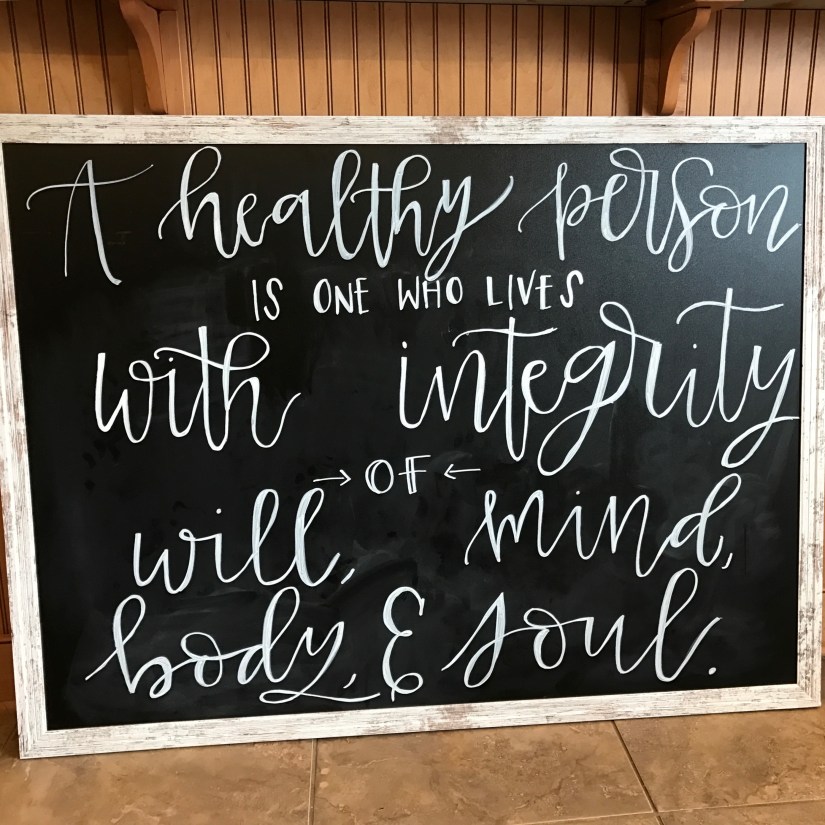 A healthy person
IS ONE WHO LIVES
with integrity
→ OF ←
will, mind,
body, & soul.